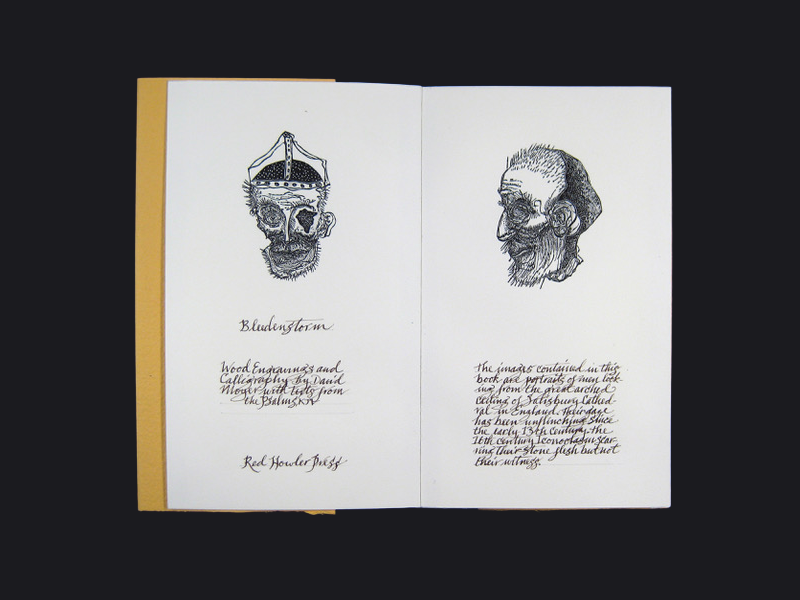 Bludenstorm
Wood Engravings and
Calligraphy by David
Moyer with texts from
the Psalms KJV
Red Howler Press
The images contained in this
book are portraits of men look-
ing from the great arched
ceiling of Salisbury Cathed-
ral in England. Their gaze
has been unflinching since
the early 13th Century. The
16th century Iconoclasm scar-
ring their stone flesh but not
their witness.